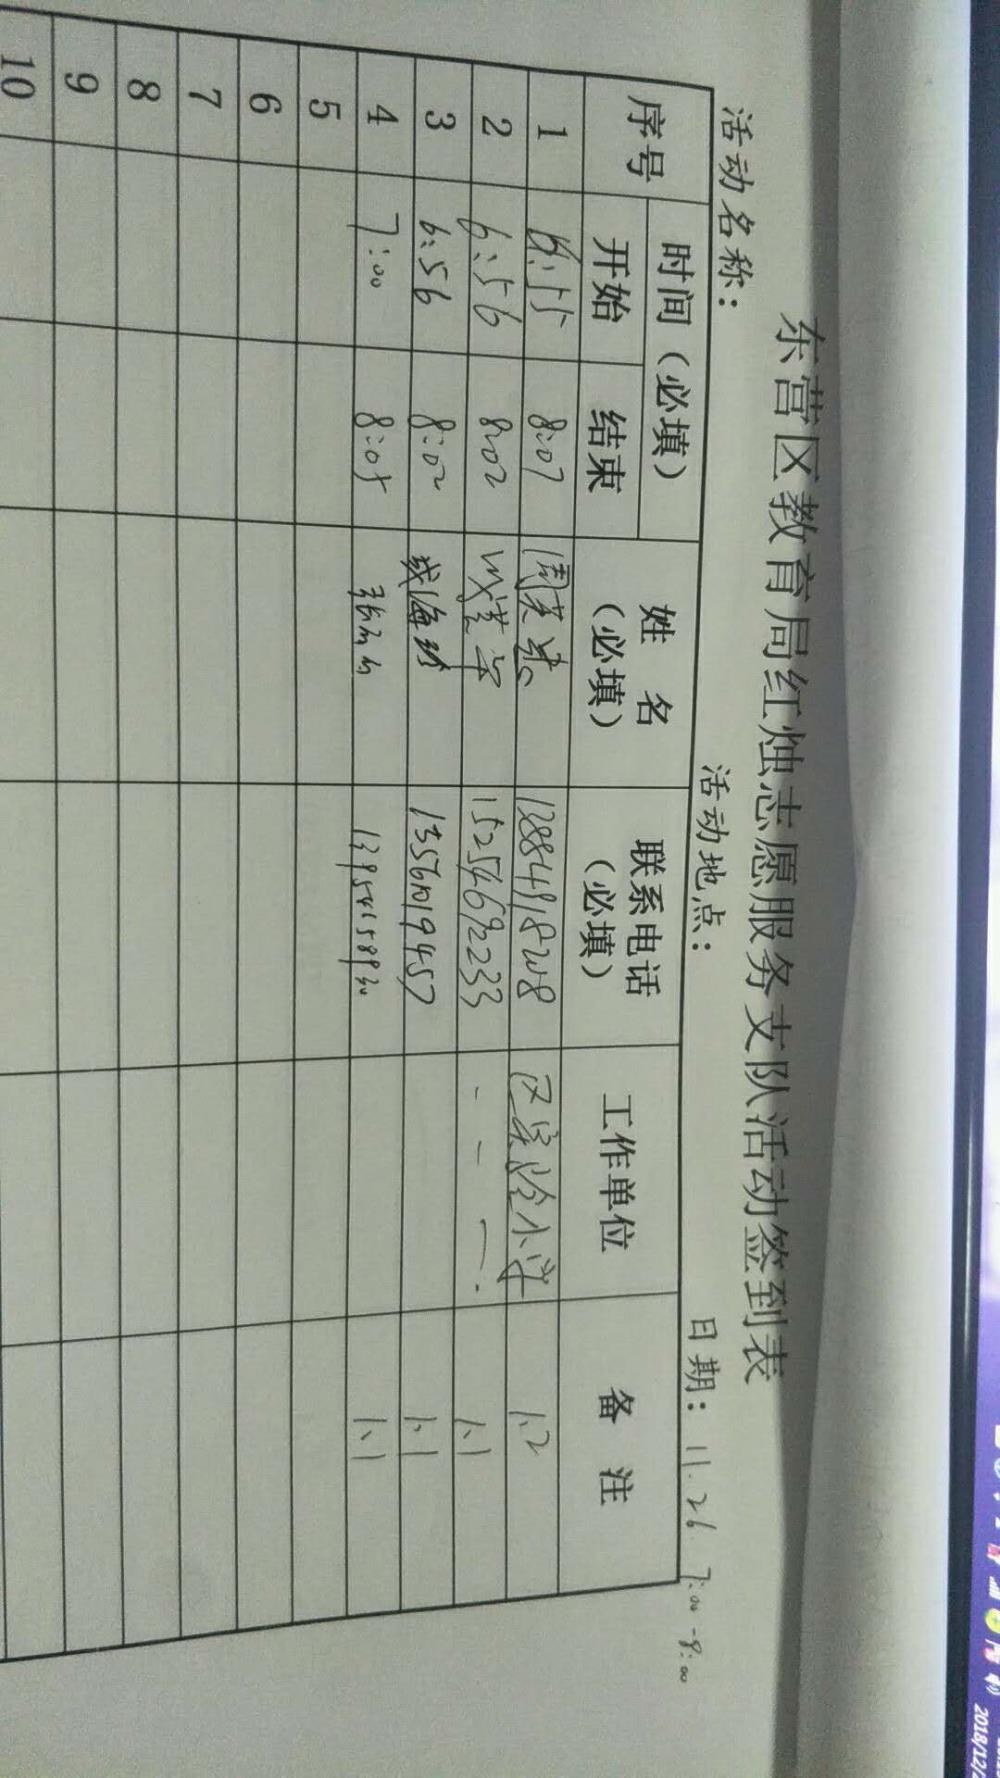 东营区教育局红烛志愿服务支队活动签到表
活动名称： 活动地点： 日期：11.26 7:00-8:00
序号 时间（必填） 姓 名（必填） 联系电话（必填） 工作单位 备 注
开始 结束
1 6:55 8:07 区实验小学 1.2
2 6:56 8:02 15254692233 - - - 1.1
3 6:56 8:02 13561019457 1.1
4 7:00 8:05 1.1
5
6
7
8
9
10
2018/12/2